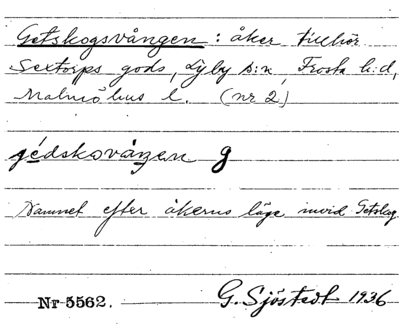 Getskogsvången : åker tillhör
Sextorps gods, Lyby s:n, Frosta h:d,
Malmöhus l. (nr 2)
g
Namnet efter åkerns läge invid Getskog
Nr 5562. G. Sjöstedt 1936